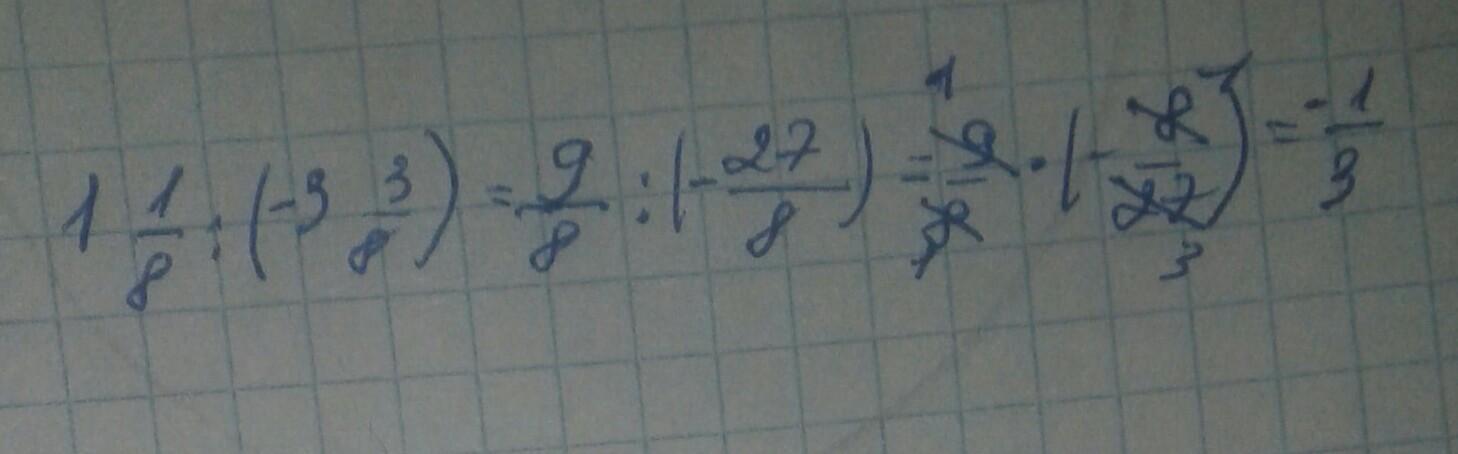 1 1/8 : (-3 3/8) = 9/8 : (-27/8) = 9/8 · (-8/27) = -1/3